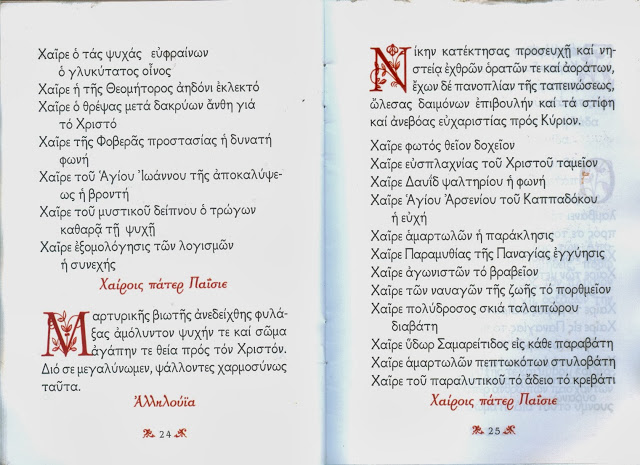 Χαῖρε ὁ τάς ψυχάς εὐφραίνων
ὁ γλυκύτατος οἶνος
Χαῖρε ἡ τῆς Θεομήτορος ἀηδόνι ἐκλεκτό
Χαῖρε ὁ θρέψας μετά δακρύων ἄνθη γιά
τό Χριστό
Χαῖρε τῆς Φοβερᾶς προστασίας ἡ δυνατή
φωνή
Χαῖρε τοῦ Ἁγίου Ἰωάννου τῆς ἀποκαλύψε-
ως ἡ βροντή
Χαῖρε τοῦ μυστικοῦ δείπνου ὁ τρώγων
καθαρᾷ τῇ ψυχῇ
Χαῖρε ἐξομολόγησις τῶν λογισμῶν
ἡ συνεχής
Χαίροις πάτερ Παΐσιε
Μαρτυρικῆς βιωτῆς ἀνεδείχθης φυλά-
ξας ἀμόλυντον ψυχήν τε καί σῶμα
ἀγάπην τε θεία πρός τόν Χριστόν.
Διό σε μεγαλύνωμεν, ψάλλοντες χαρμοσύνως
ταῦτα.
Ἀλληλούϊα
24
Νίκην κατέκτησας προσευχῇ καί νη-
στείᾳ ἐχθρῶν ὁρατῶν τε καί ἀοράτων,
ἔχων δέ πανοπλίαν τῆς ταπεινώσεως,
ὤλεσας δαιμόνων ἐπιβουλήν καί τά στίφη
καί ἀνεβόας εὐχαριστίας πρός Κύριον.
Χαῖρε φωτός θεῖον δοχεῖον
Χαῖρε εὐσπλαχνίας τοῦ Χριστοῦ ταμεῖον
Χαῖρε Δαυΐδ ψαλτηρίου ἡ φωνή
Χαῖρε Ἁγίου Ἀρσενίου τοῦ Καππαδόκου
ἡ εὐχή
Χαῖρε ἁμαρτωλῶν ἡ παράκλησις
Χαῖρε Παραμυθίας τῆς Παναγίας ἐγγύησις
Χαῖρε ἀγωνιστῶν τό βραβεῖον
Χαῖρε τῶν ναυαγῶν τῆς ζωῆς τό πορθμεῖον
Χαῖρε πολύδροσος σκιά ταλαιπώρου
διαβάτη
Χαῖρε ὕδωρ Σαμαρείτιδος εἰς κάθε παραβάτη
Χαῖρε ἁμαρτωλῶν πεπτωκότων στυλοβάτη
Χαῖρε τοῦ παραλυτικοῦ τό ἄδειο τό κρεβάτι
Χαίροις πάτερ Παΐσιε
25